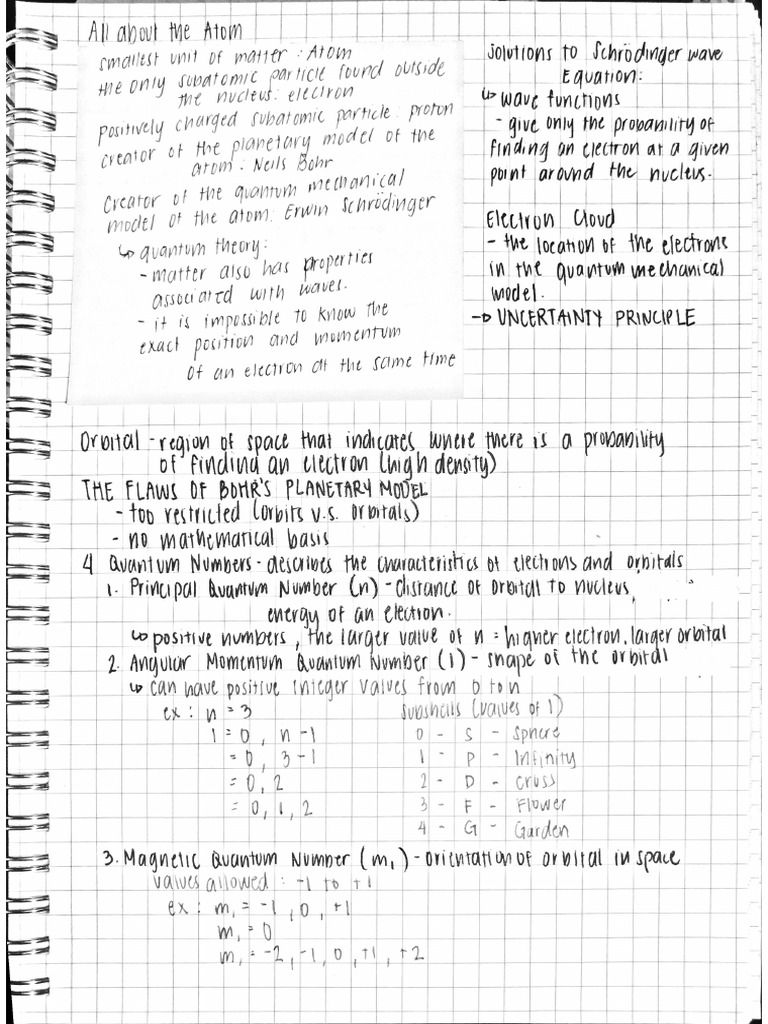 All about the Atom
smallest unit of matter : Atom
the only subatomic particle found outside
the nucleus: electron
positively charged subatomic particle: proton
creator of the planetary model of the
atom: Neils Bohr
Creator of the quantum mechanical
model of the atom: Erwin Schrödinger
↳ quantum theory:
- matter also has properties
associated with waves.
- it is impossible to know the
exact position and momentum
of an electron at the same time
solutions to Schrödinger wave
Equation:
↳ wave functions
- give only the probability of
finding an electron at a given
point around the nucleus.
Electron Cloud
- the location of the electrons
in the quantum mechanical
model.
→ UNCERTAINTY PRINCIPLE
Orbital - region of space that indicates where there is a probability
of finding an electron (high density)
THE FLAWS OF BOHR'S PLANETARY MODEL
- too restricted (orbits v.s. orbitals)
- no mathematical basis
4 Quantum Numbers - describes the characteristics of electrons and orbitals
1. Principal Quantum Number (n) - distance of orbital to nucleus,
energy of an electron.
↳ positive numbers, the larger value of n = higher electron, larger orbital
2. Angular Momentum Quantum Number (l) - shape of the orbital
↳ can have positive integer values from 0 to n
ex: n = 3
l = 0, n - 1
= 0, 3 - 1
= 0, 2
= 0, 1, 2
subshells (values of l)
0 - S - Sphere
1 - P - Infinity
2 - D - cross
3 - F - Flower
4 - G - Garden
3. Magnetic Quantum Number (mₗ) - orientation of orbital in space
values allowed: -l to +l
ex: mₗ = -1, 0, +1
mₗ = 0
mₗ = -2, -1, 0, +1, +2